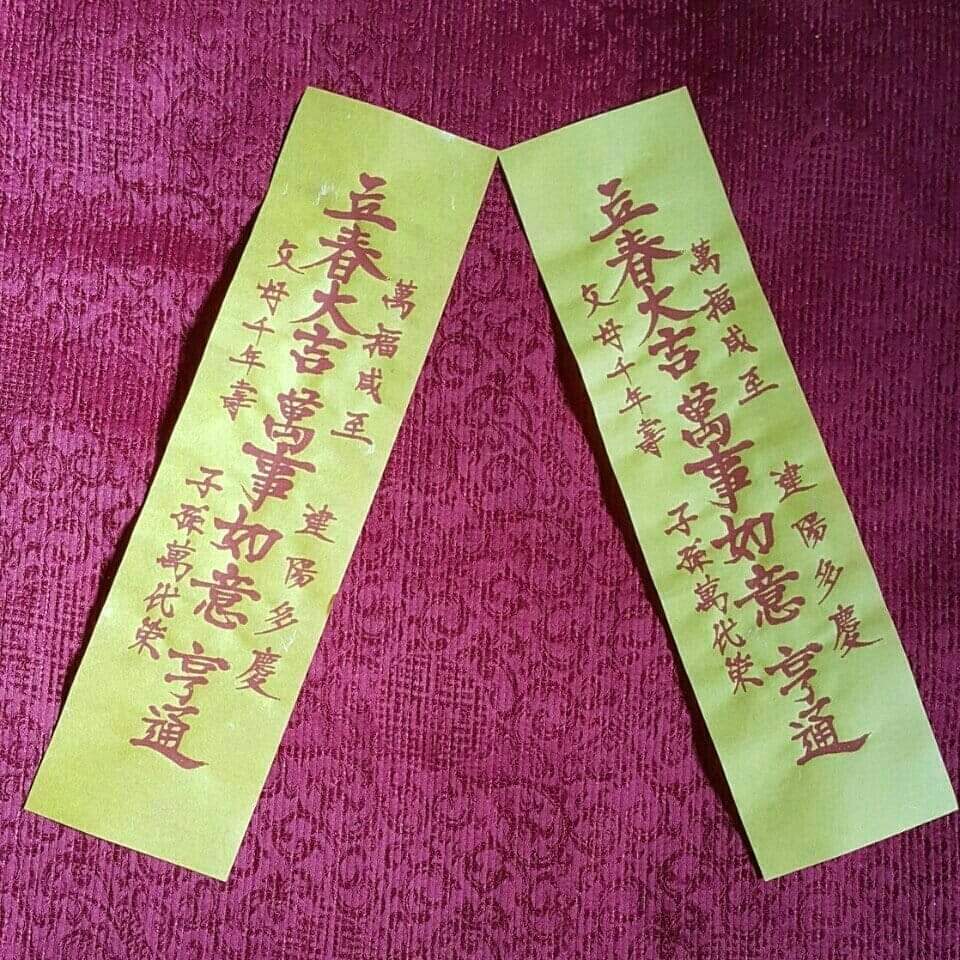 萬福咸至 建陽多慶
立春大吉 萬事如意 亨通
父母千年壽 子孫萬代榮
萬福咸至 建陽多慶
立春大吉 萬事如意 亨通
父母千年壽 子孫萬代榮